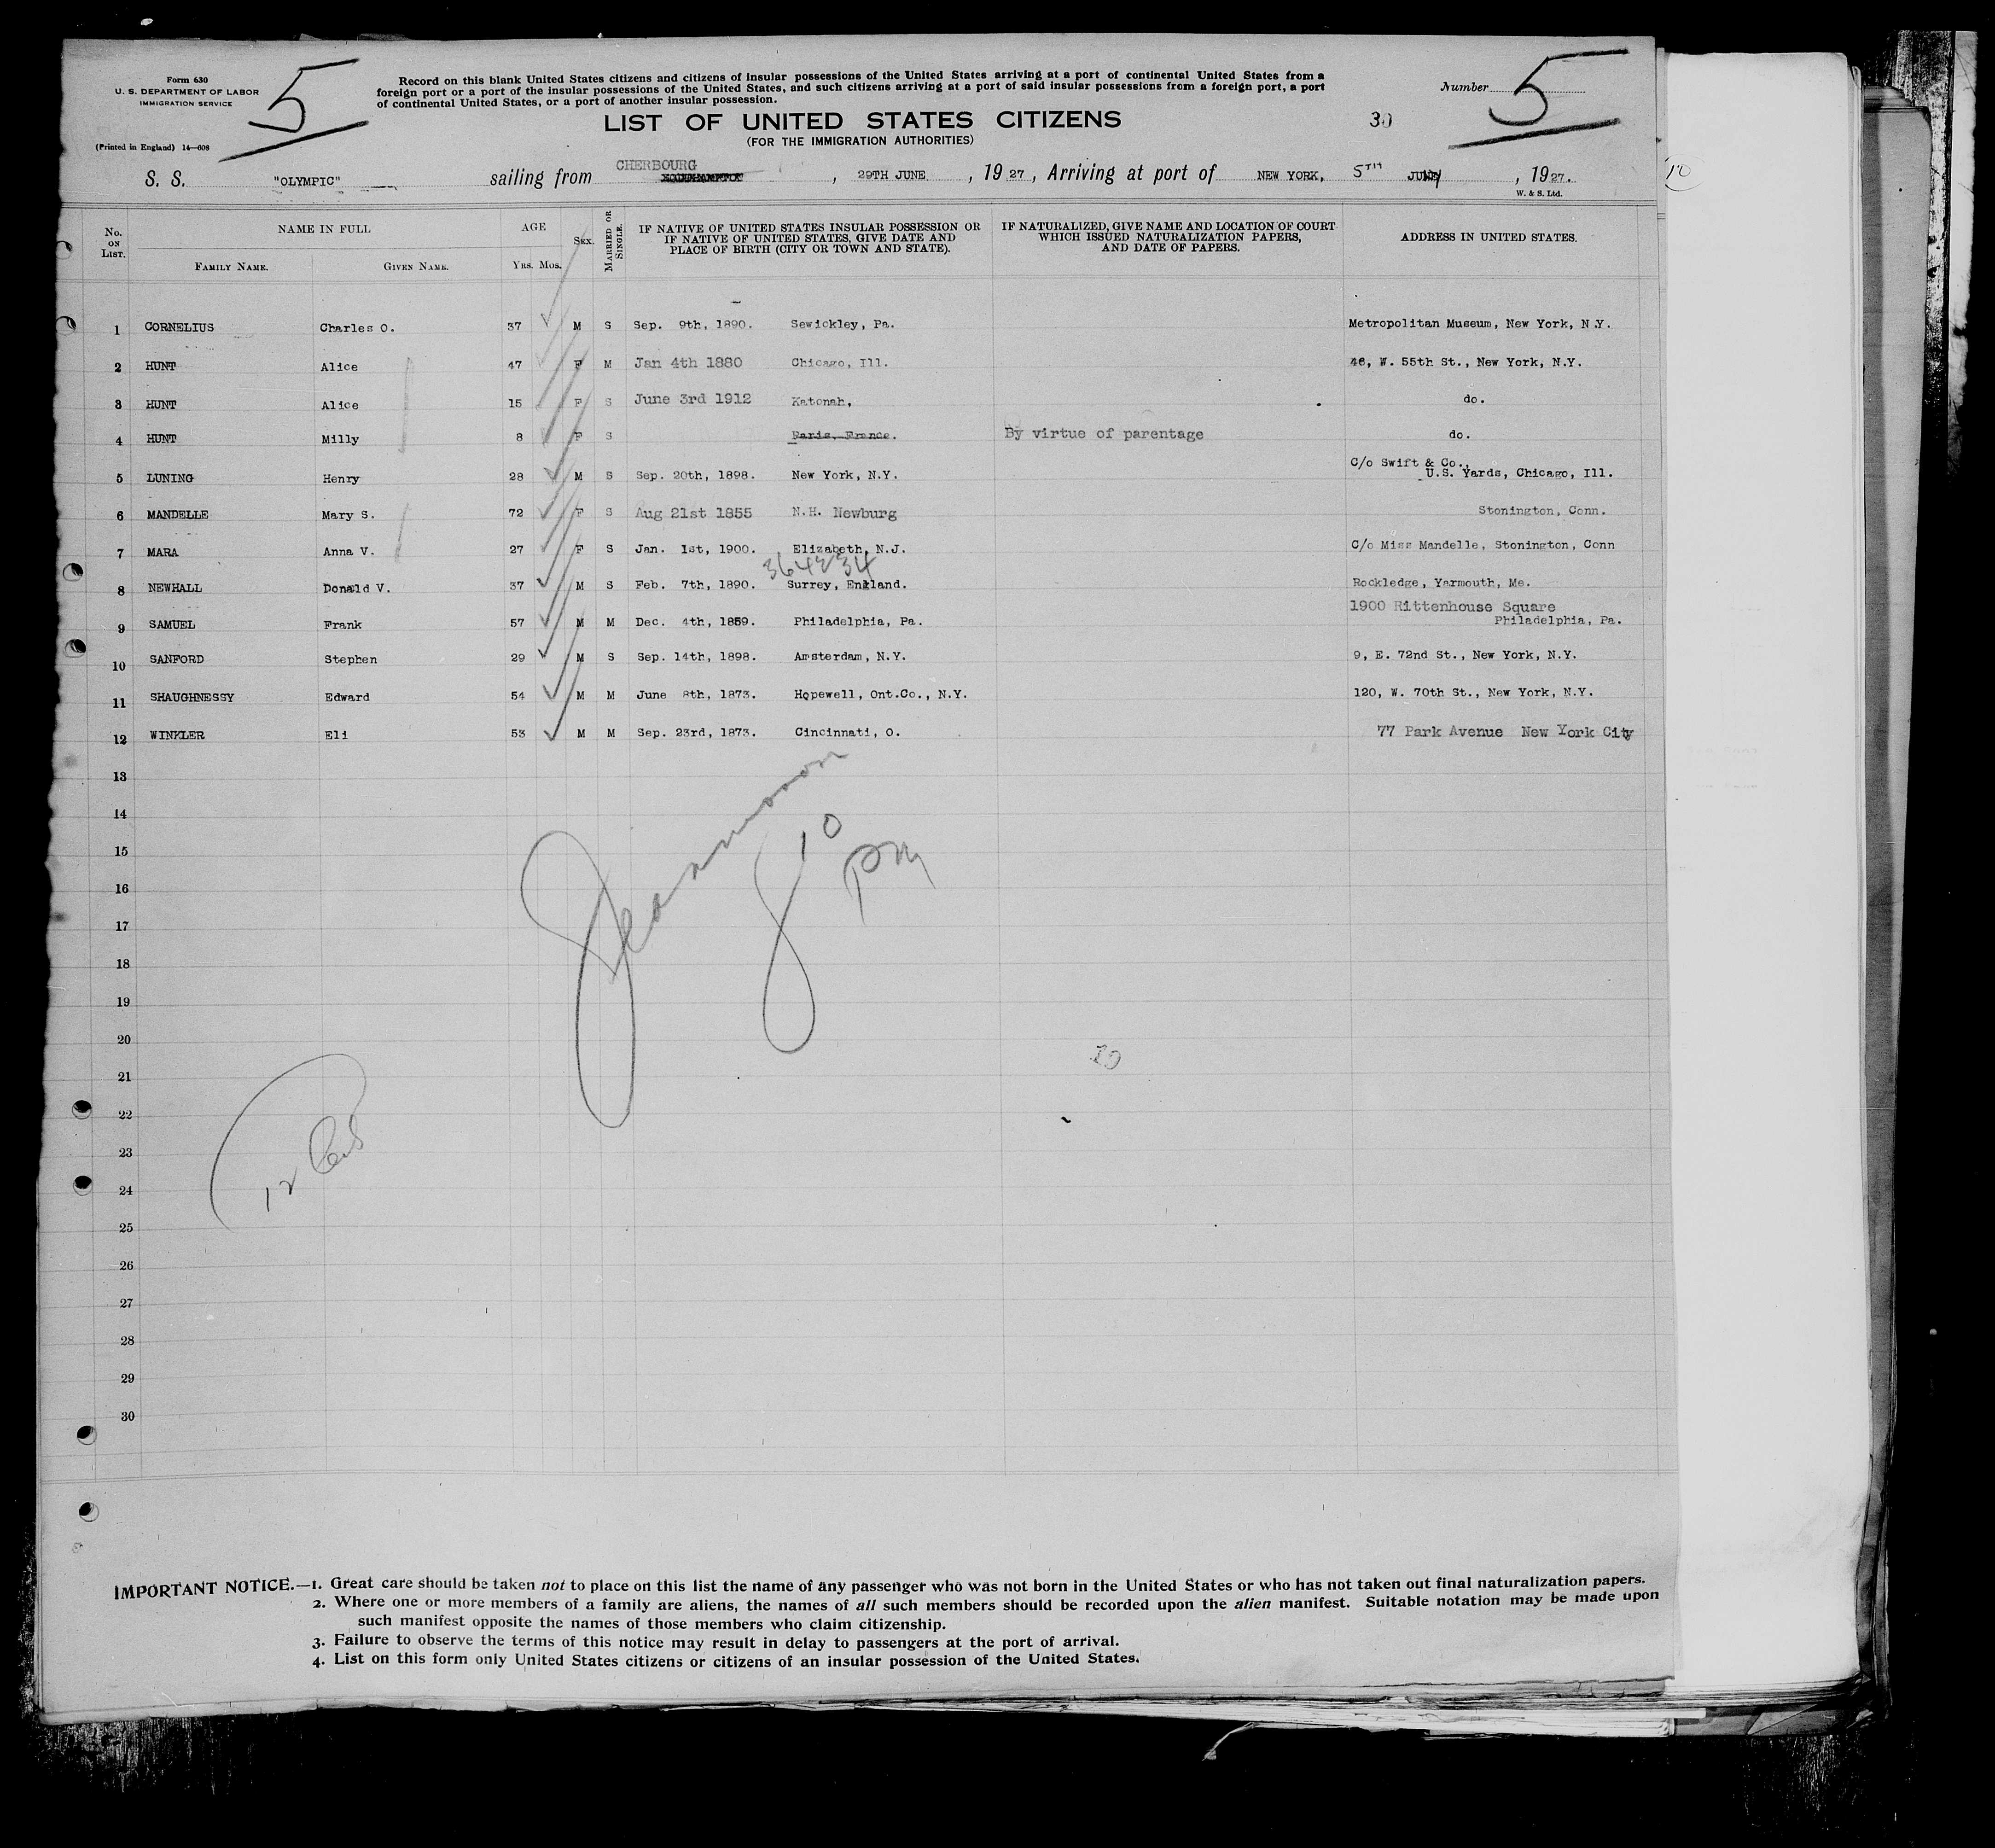 Form 630
U. S. DEPARTMENT OF LABOR
IMMIGRATION SERVICE
5
Record on this blank United States citizens and citizens of insular possessions of the United States arriving at a port of continental United States from a
foreign port or a port of the insular possessions of the United States, and such citizens arriving at a port of said insular possessions from a foreign port, a port
of continental United States, or a port of another insular possession.
Number 5
LIST OF UNITED STATES CITIZENS
30
(FOR THE IMMIGRATION AUTHORITIES)
(Printed in England) 14—608
S. S. "OLYMPIC" sailing from CHERBOURG, 29TH JUNE, 1927, Arriving at port of NEW YORK, 5TH JULY, 1927.
W. & S. Ltd.
No. ON LIST. NAME IN FULL AGE SEX. MARRIED OR SINGLE. IF NATIVE OF UNITED STATES INSULAR POSSESSION OR IF NATIVE OF UNITED STATES, GIVE DATE AND PLACE OF BIRTH (CITY OR TOWN AND STATE). IF NATURALIZED, GIVE NAME AND LOCATION OF COURT WHICH ISSUED NATURALIZATION PAPERS, AND DATE OF PAPERS. ADDRESS IN UNITED STATES.
FAMILY NAME. GIVEN NAME. YRS. MOS.
1 CORNELIUS Charles O. 37 M S Sep. 9th, 1890. Sewickley, Pa. Metropolitan Museum, New York, N.Y.
2 HUNT Alice 47 F M Jan 4th 1880 Chicago, Ill. 46, W. 55th St., New York, N.Y.
3 HUNT Alice 15 F S June 3rd 1912 Katonah, do.
4 HUNT Milly 8 F S Paris, France. By virtue of parentage do.
5 LUNING Henry 28 M S Sep. 20th, 1898. New York, N.Y. C/o Swift & Co.,
U.S. Yards, Chicago, Ill.
6 MANDELLE Mary S. 72 F S Aug 21st 1855 N.H. Newburg Stonington, Conn.
7 MARA Anna V. 27 F S Jan. 1st, 1900. Elizabeth, N.J. C/o Miss Mandelle, Stonington, Conn
8 NEWHALL Donald V. 37 M S Feb. 7th, 1890. Surrey, England. Rockledge, Yarmouth, Me.
9 SAMUEL Frank 57 M M Dec. 4th, 1859. Philadelphia, Pa. 1900 Rittenhouse Square
Philadelphia, Pa.
10 SANFORD Stephen 29 M S Sep. 14th, 1898. Amsterdam, N.Y. 9, E. 72nd St., New York, N.Y.
11 SHAUGHNESSY Edward 54 M M June 8th, 1873. Hopewell, Ont.Co., N.Y. 120, W. 70th St., New York, N.Y.
12 WINKLER Eli 53 M M Sep. 23rd, 1873. Cincinnati, O. 77 Park Avenue New York City
13
14
15
16
17
18
19
20
21
22
23
24
25
26
27
28
29
30
8 10
PM
12
IMPORTANT NOTICE.—1. Great care should be taken not to place on this list the name of any passenger who was not born in the United States or who has not taken out final naturalization papers.
2. Where one or more members of a family are aliens, the names of all such members should be recorded upon the alien manifest. Suitable notation may be made upon
such manifest opposite the names of those members who claim citizenship.
3. Failure to observe the terms of this notice may result in delay to passengers at the port of arrival.
4. List on this form only United States citizens or citizens of an insular possession of the United States.